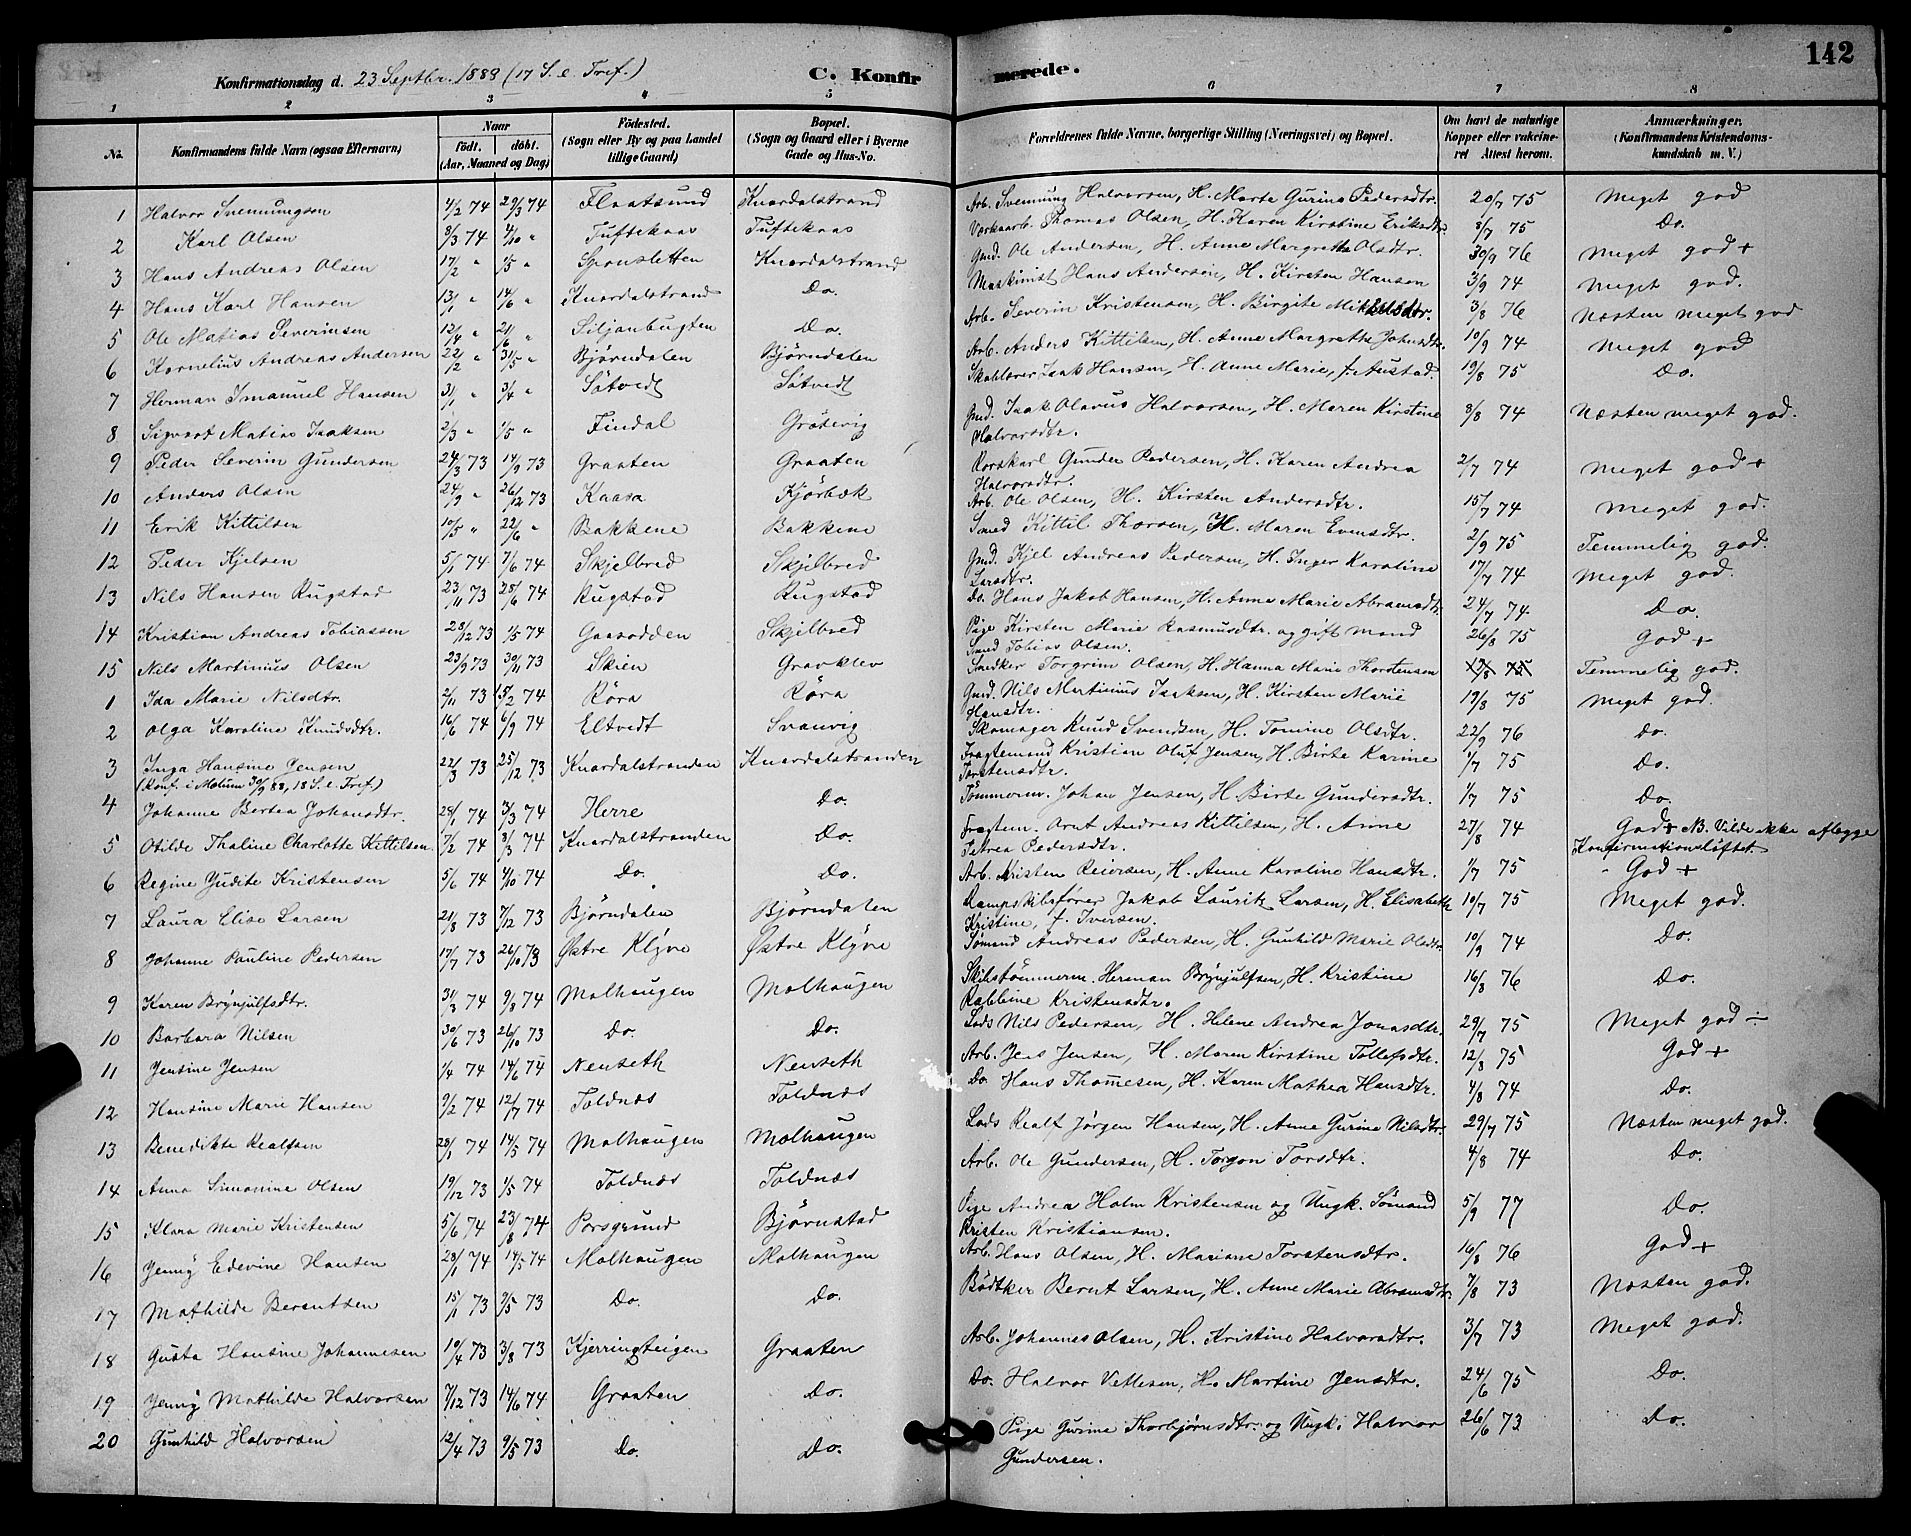 142
Konfirmationsdag d. 23 Septbr. 1888 (17 S. e. Tref.) C. Konfirmerede.
1 2 3 4 5 6 7 8
No. Konfirmandens fulde Navn (ogsaa Efternavn) Naar født. døbt. (Aar, Maaned og Dag) Fødested. (Sogn eller By og paa Landet tillige Gaard) Bopæl. (Sogn og Gaard eller i Byerne Gade og Hus-No. Forældrenes fulde Navne, borgerlige Stilling (Næringsvei) og Bopæl. Om havt de naturlige Kopper eller vakcineret Attest herom. Anmærkninger. (Konfirmandens Kristendomskundskab m. V.)
1 Halvor Svennungsen 4/2 74 29/3 74 Flaatsund Knardalstrand Arb. Svennung Halvorsen, H. Marte Gurine Pedersdtr. 20/7 75 Meget god
2 Karl Olsen 8/3 74 4/10 " Tuftekaas Tuftekaas Værksarb. Thomas Olsen, H. Karen Kirstine Eriksdtr. 8/7 75 Do.
3 Hans Andreas Olsen 17/2 " 1/5 " Knardalstrand Gmd. Ole Andersen, H. Anne Margrethe Olsdtr. 30/9 76 Meget god +
4 Hans Karl Hansen 13/1 " 14/6 " Knardalstrand Do. Maskinist Hans Andersen, H. Kirsten Hansen 3/9 74 Meget god.
5 Ole Matias Severinsen 12/4 " 21/6 " Siljanbugten Do. Arb. Severin Kristensen, H. Birgite Mikkelsdtr. 3/8 76 Næsten meget god
6 Kornelius Andreas Andersen 22/2 " 31/5 " Bjørndalen Bjørndalen Arb. Anders Kittilsen, H. Anne Margrethe Johnsdtr. 10/9 74 Meget god
7 Herman Imanuel Hansen 31/1 " 3/4 " Søtvedt Søtvedt Skolelærer Isak Hansen, H. Anne Marie, f. Austad. 19/8 75 Do.
8 Sigvart Matias Isaksen 2/3 " 1/5 " Findal Grøtsvig Gmd. Isak Olavus Halvorsen, H. Maren Kirstine Halvorsdtr. 8/8 74 Næsten meget god.
9 Peder Severin Gundersen 24/3 73 14/9 73 Graaten Graaten Rorskarl Gunder Pedersen, H. Karen Andrea Halvorsdtr. 2/7 74 Meget god +
10 Anders Olsen 24/9 " 26/12 73 Kaasa Kjørbæk Arb. Ole Olsen, H. Kirsten Andersdtr. 15/7 74 Meget god.
11 Erik Kittilsen 10/5 " 22/6 " Bakkene Bakkene Smed Kittil Thorsen, H. Maren Evensdtr. 2/9 75 Temmelig god.
12 Peder Kjelsen 5/1 74 7/6 74 Skjelbred Skjelbred Gmd. Kjel Andreas Pedersen, H. Inger Karoline Larsdtr. 17/7 74 Meget god.
13 Nils Hansen Rugstad 23/11 73 25/6 74 Rugstad Rugstad Do. Hans Jakob Hansen, H. Anne Marie Abramsdtr. 24/7 74 Do
14 Kristian Andreas Tobiassen 28/12 73 1/5 74 Gaasodden Skjelbred Pige Kirsten Marie Rasmusdtr. og gift mand Smed Tobias Olsen. 26/8 75 God +
15 Nils Martinius Olsen 23/9 73 30/11 73 Skien Gravklev Snedker Torgrim Olsen, H. Hanna Marie Thorstensen 75 Temmelig god.
1 Ida Marie Nilsdtr. 2/11 73 15/2 74 Røra Røra Gmd. Nils Martinius Isaksen, H. Kirsten Marie Hansdtr. 19/8 75 Meget god.
2 Olga Karoline Knudsdtr. 16/6 74 6/9 74 Eltvedt Svanvig Skomager Knud Svendsen, H. Tomine Olsdtr. 22/9 76 Do.
3 Inga Hansine Jensen 22/3 73 25/12 73 Knardalstranden Knardalstranden Fragtemand Kristian Oluf Jensen, H. Birte Karine Torstensdtr. 1/7 75 Do.
(Konf. i Mælum 30/9 88, 18 S. e. Tref.)
4 Johanne Bertea Johansdtr. 29/1 74 3/3 74 Herre Do. Tømmerm. Johan Jensen, H. Birte Gundersdtr. 1/7 75 Do.
5 Otilde Thaline Charlotte Kittilsen 7/2 74 8/3 74 Knardalstranden Do. Fragtem. Arnt Andreas Kittilsen, H. Anne Petrea Pedersdtr. 27/8 74 God + NB. Vilde ikke aflegge Konfirmationsløftet.
6 Regine Judite Kristensen 5/6 74 4/10 74 Do. Do. Arb. Kristen Reiersen, H. Anne Karoline Hansdtr. 1/7 75 God +
7 Laura Elise Larsen 21/8 73 7/12 73 Bjørndalen Bjørndalen Dampskibsfører Jakob Lauritz Larsen, H. Elisabeth Kristine, f. Iversen. 10/7 75 Meget god.
8 Johanne Pauline Pedersen 17/7 73 26/10 73 Østre Klyve Østre Klyve Sømand Andreas Pedersen, H. Gunhild Marie Olsdtr. 10/9 74 Do.
9 Karen Brynjulfsdtr. 31/3 74 9/8 74 Molhaugen Molhaugen Skibstømmerm. Herman Brynjulfsen, H. Kristine Rabbine Kristensdtr. 16/8 76 Do.
10 Barbara Nilsen 30/6 73 26/10 73 Do. Do. Lods Nils Pedersen, H. Helene Andrea Jonasdtr. 29/7 75 Meget god ÷
11 Jensine Jensen 1/4 74 14/6 74 Nenseth Nenseth Arb. Jens Jensen, H. Maren Kirstine Tollefsdtr. 12/8 75 God +
12 Hansine Marie Hansen 9/2 74 12/7 74 Toldnæs Toldnæs Do. Hans Thommesen, H. Karen Mathea Hansdtr. 4/8 74 Do.
13 Benedikte Realfsen 28/1 74 14/5 74 Molhaugen Molhaugen Lods Realf Jørgen Hansen, H. Anne Gurine Nilsdtr. 29/7 75 Næsten meget god.
14 Anna Simonine Olsen 19/12 73 1/5 74 Toldnæs Toldnæs Arb. Ole Gundersen, H. Torgon Torsdtr. 4/8 74 Do.
15 Klara Marie Kristensen 5/6 74 23/8 74 Porsgrund Bjørnstad Pige Andrea Holm Kristensen og Ungk. Sømand Kristen Kristiansen. 5/9 77 Do.
16 Jenny Edevine Hansen 28/1 74 14/5 74 Molhaugen Molhaugen Arb. Hans Olsen, H. Mariane Torstensdtr. 16/8 76 God +
17 Mathilde Berentsen 15/1 73 2/5 73 Do. Do. Bødtker Bernt Larsen, H. Anne Marie Abramsdtr. 7/8 73 Næsten god.
18 Gusta Hansine Johannesen 10/4 73 3/8 73 Kjerringteigen Graaten Arb. Johannes Olsen, H. Kristine Halvorsdtr. 3/7 73 Meget god.
19 Jenny Mathilde Halvorsen 7/12 73 14/6 74 Graaten Do. Do. Halvor Vetlesen, H. Martine Jensdtr. 24/6 75 Do.
20 Gunhild Halvorsen 12/4 73 9/5 73 Do. Do. Pige Gurine Thorbjørnsdtr. og Ungk. Halvor Gundersen. 26/6 73 Do.